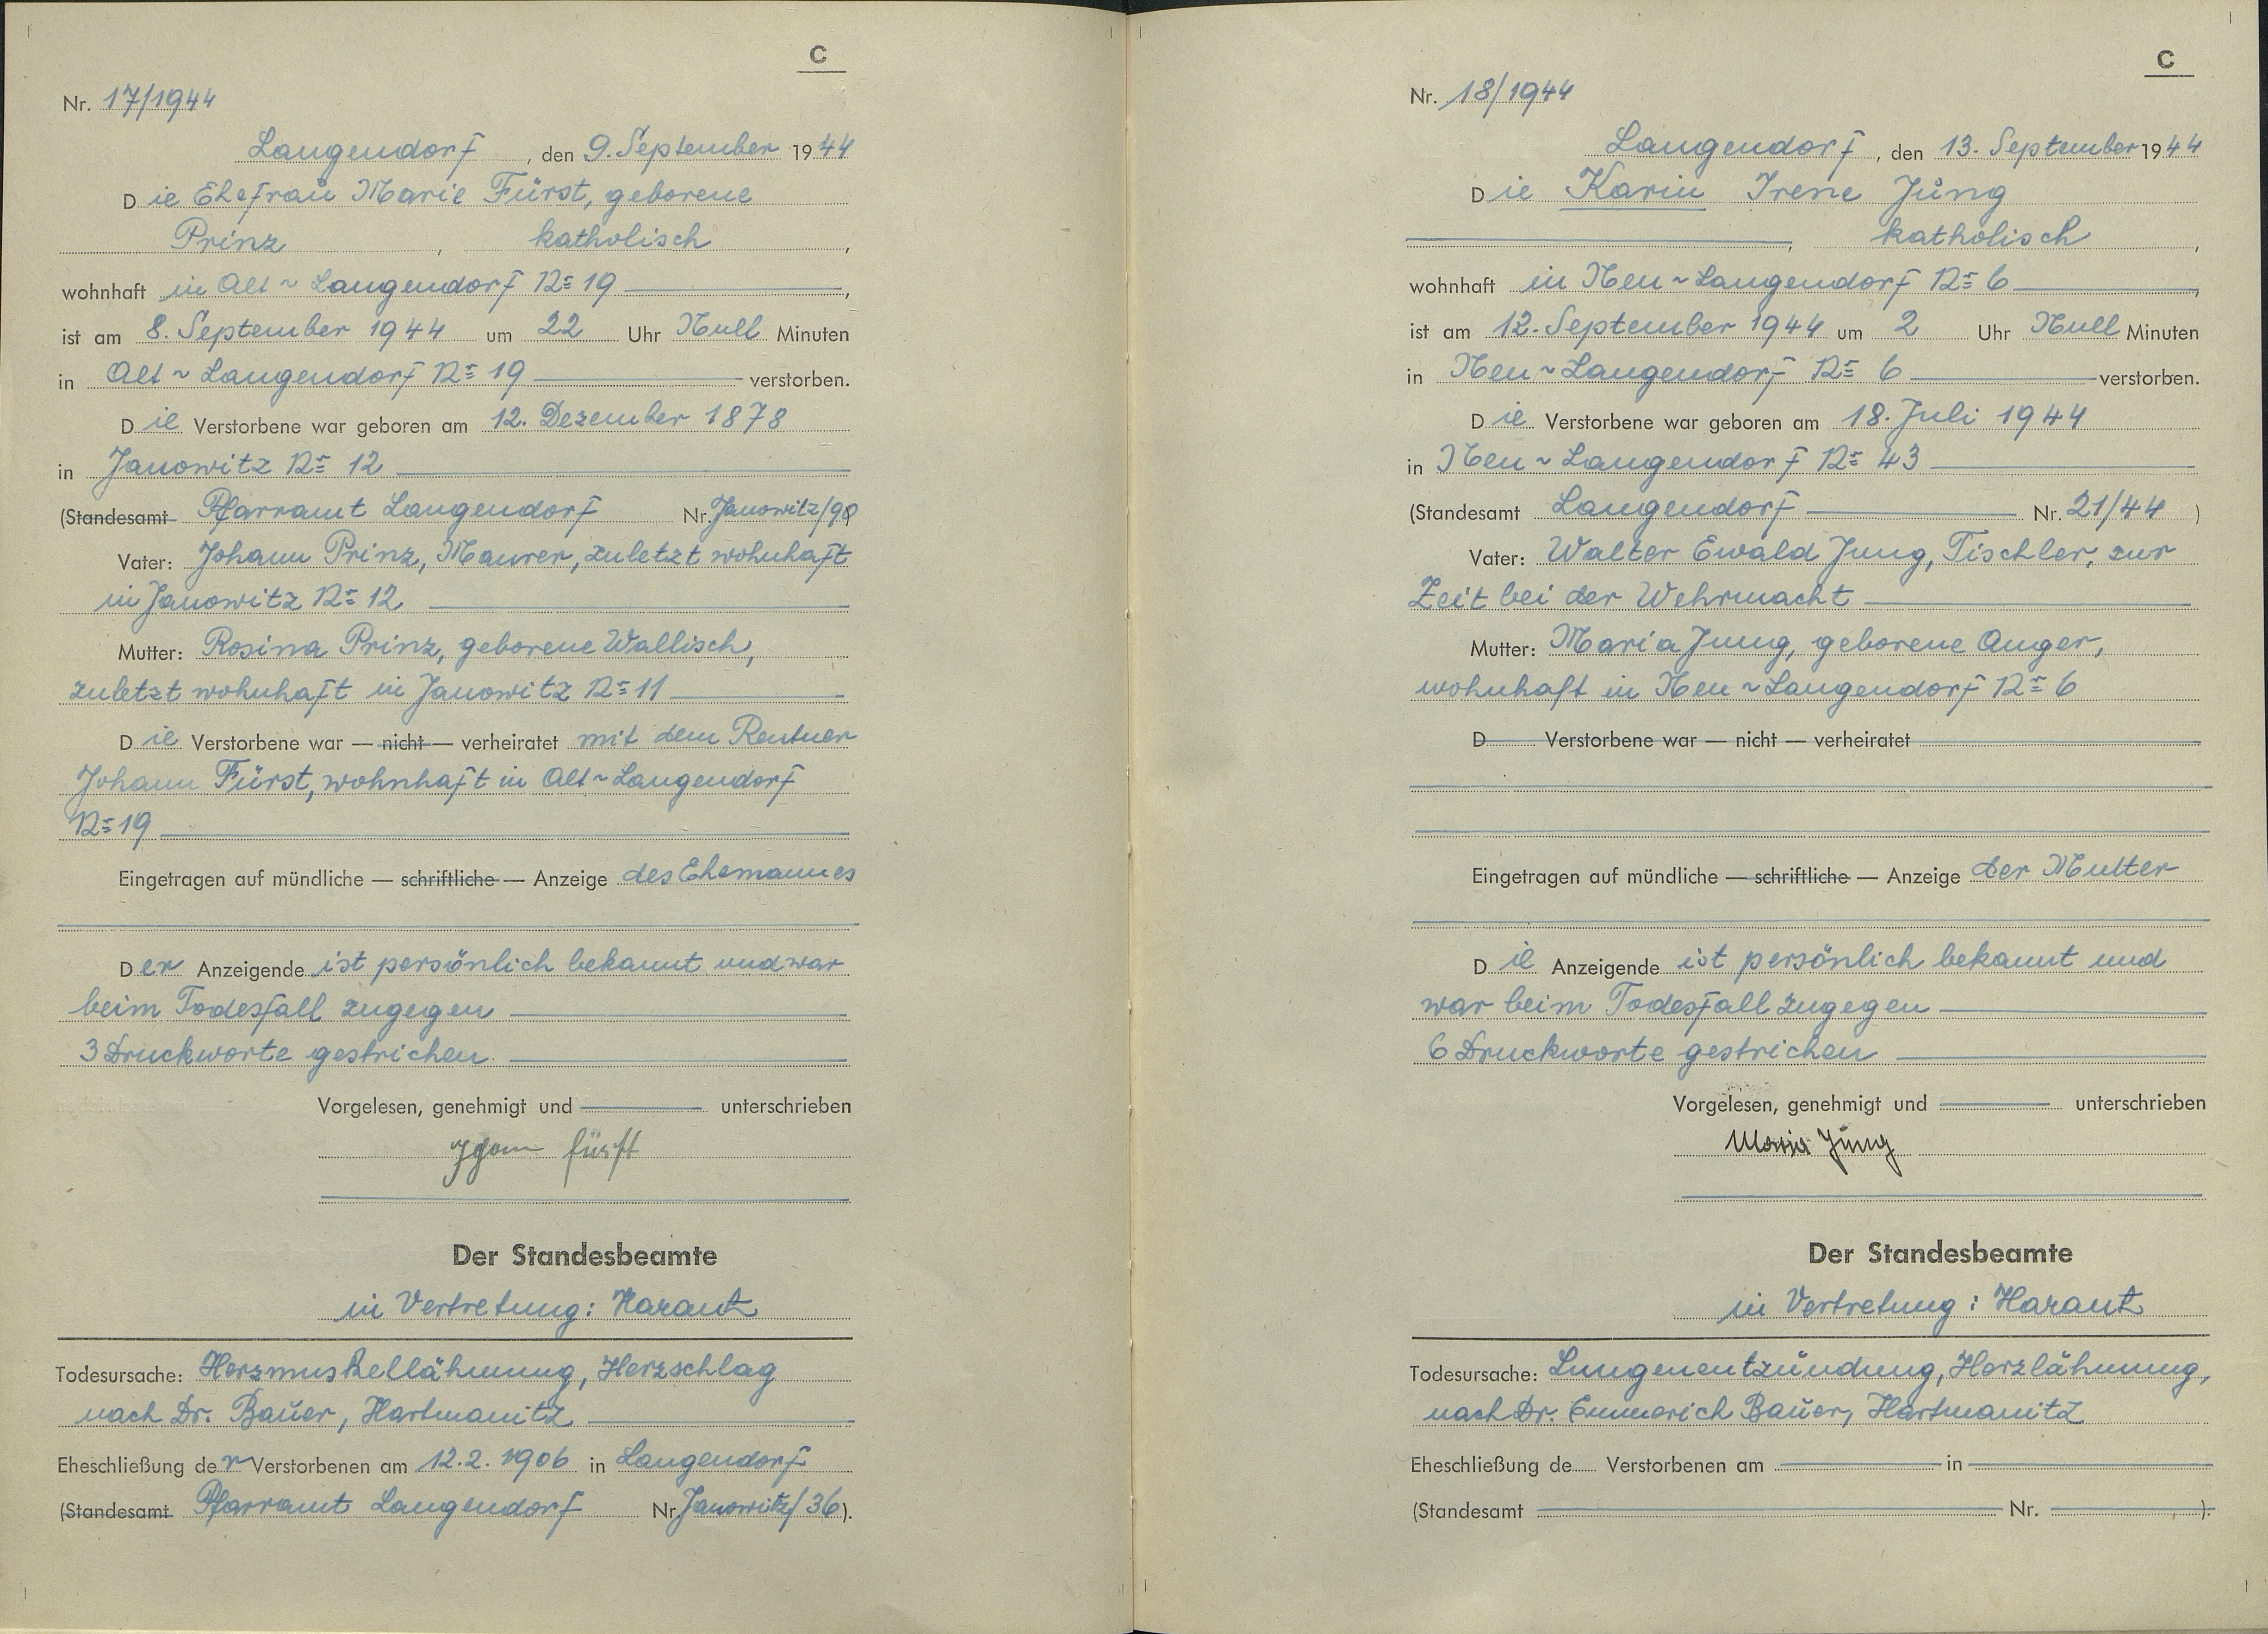 C
Nr. 17/1944
Langendorf, den 9. September 1944
Die Ehefrau Marie Fürst, geborene
Prinz, katholisch,
wohnhaft in Alt~Langendorf No 19,
ist am 8. September 1944 um 22 Uhr Null Minuten
in Alt~Langendorf No 19 verstorben.
Die Verstorbene war geboren am 12. Dezember 1878
in Janowitz No 12
(Standesamt Pfarramt Langendorf Nr. Janowitz/90)
Vater: Johann Prinz, Maurer, zuletzt wohnhaft
in Janowitz No 12
Mutter: Rosina Prinz, geborene Wallisch,
zuletzt wohnhaft in Janowitz No 11
Die Verstorbene war — nicht — verheiratet mit dem Rentner
Johann Fürst, wohnhaft in Alt~Langendorf
No 19
Eingetragen auf mündliche — schriftliche — Anzeige des Ehemannes
Der Anzeigende ist persönlich bekannt und war
beim Todesfall zugegen
3 Druckworte gestrichen.
Vorgelesen, genehmigt und unterschrieben
Fürst
Der Standesbeamte
in Vertretung: Harant
Todesursache: Herzmuskellähmung, Herzschlag
nach Dr. Bauer, Hartmanitz
Eheschließung der Verstorbenen am 12.2.1906 in Langendorf
(Standesamt Pfarramt Langendorf Nr. Janowitz/36).
C
Nr. 18/1944
Langendorf, den 13. September 1944
Die Karin Irene Jung
, katholisch,
wohnhaft in Neu~Langendorf No 6,
ist am 12. September 1944 um 2 Uhr Null Minuten
in Neu~Langendorf No 6 verstorben.
Die Verstorbene war geboren am 18. Juli 1944
in Neu~Langendorf No 43
(Standesamt Langendorf Nr. 21/44)
Vater: Walter Ewald Jung, Tischler, zur
Zeit bei der Wehrmacht
Mutter: Maria Jung, geborene Anger,
wohnhaft in Neu~Langendorf No 6
D Verstorbene war — nicht — verheiratet
Eingetragen auf mündliche — schriftliche — Anzeige der Mutter
Die Anzeigende ist persönlich bekannt und
war beim Todesfall zugegen
6 Druckworte gestrichen
Vorgelesen, genehmigt und unterschrieben
Maria Jung
Der Standesbeamte
in Vertretung: Harant
Todesursache: Lungenentzündung, Herzlähmung,
nach Dr. Emmerich Bauer, Hartmanitz
Eheschließung de Verstorbenen am in
(Standesamt Nr. ).